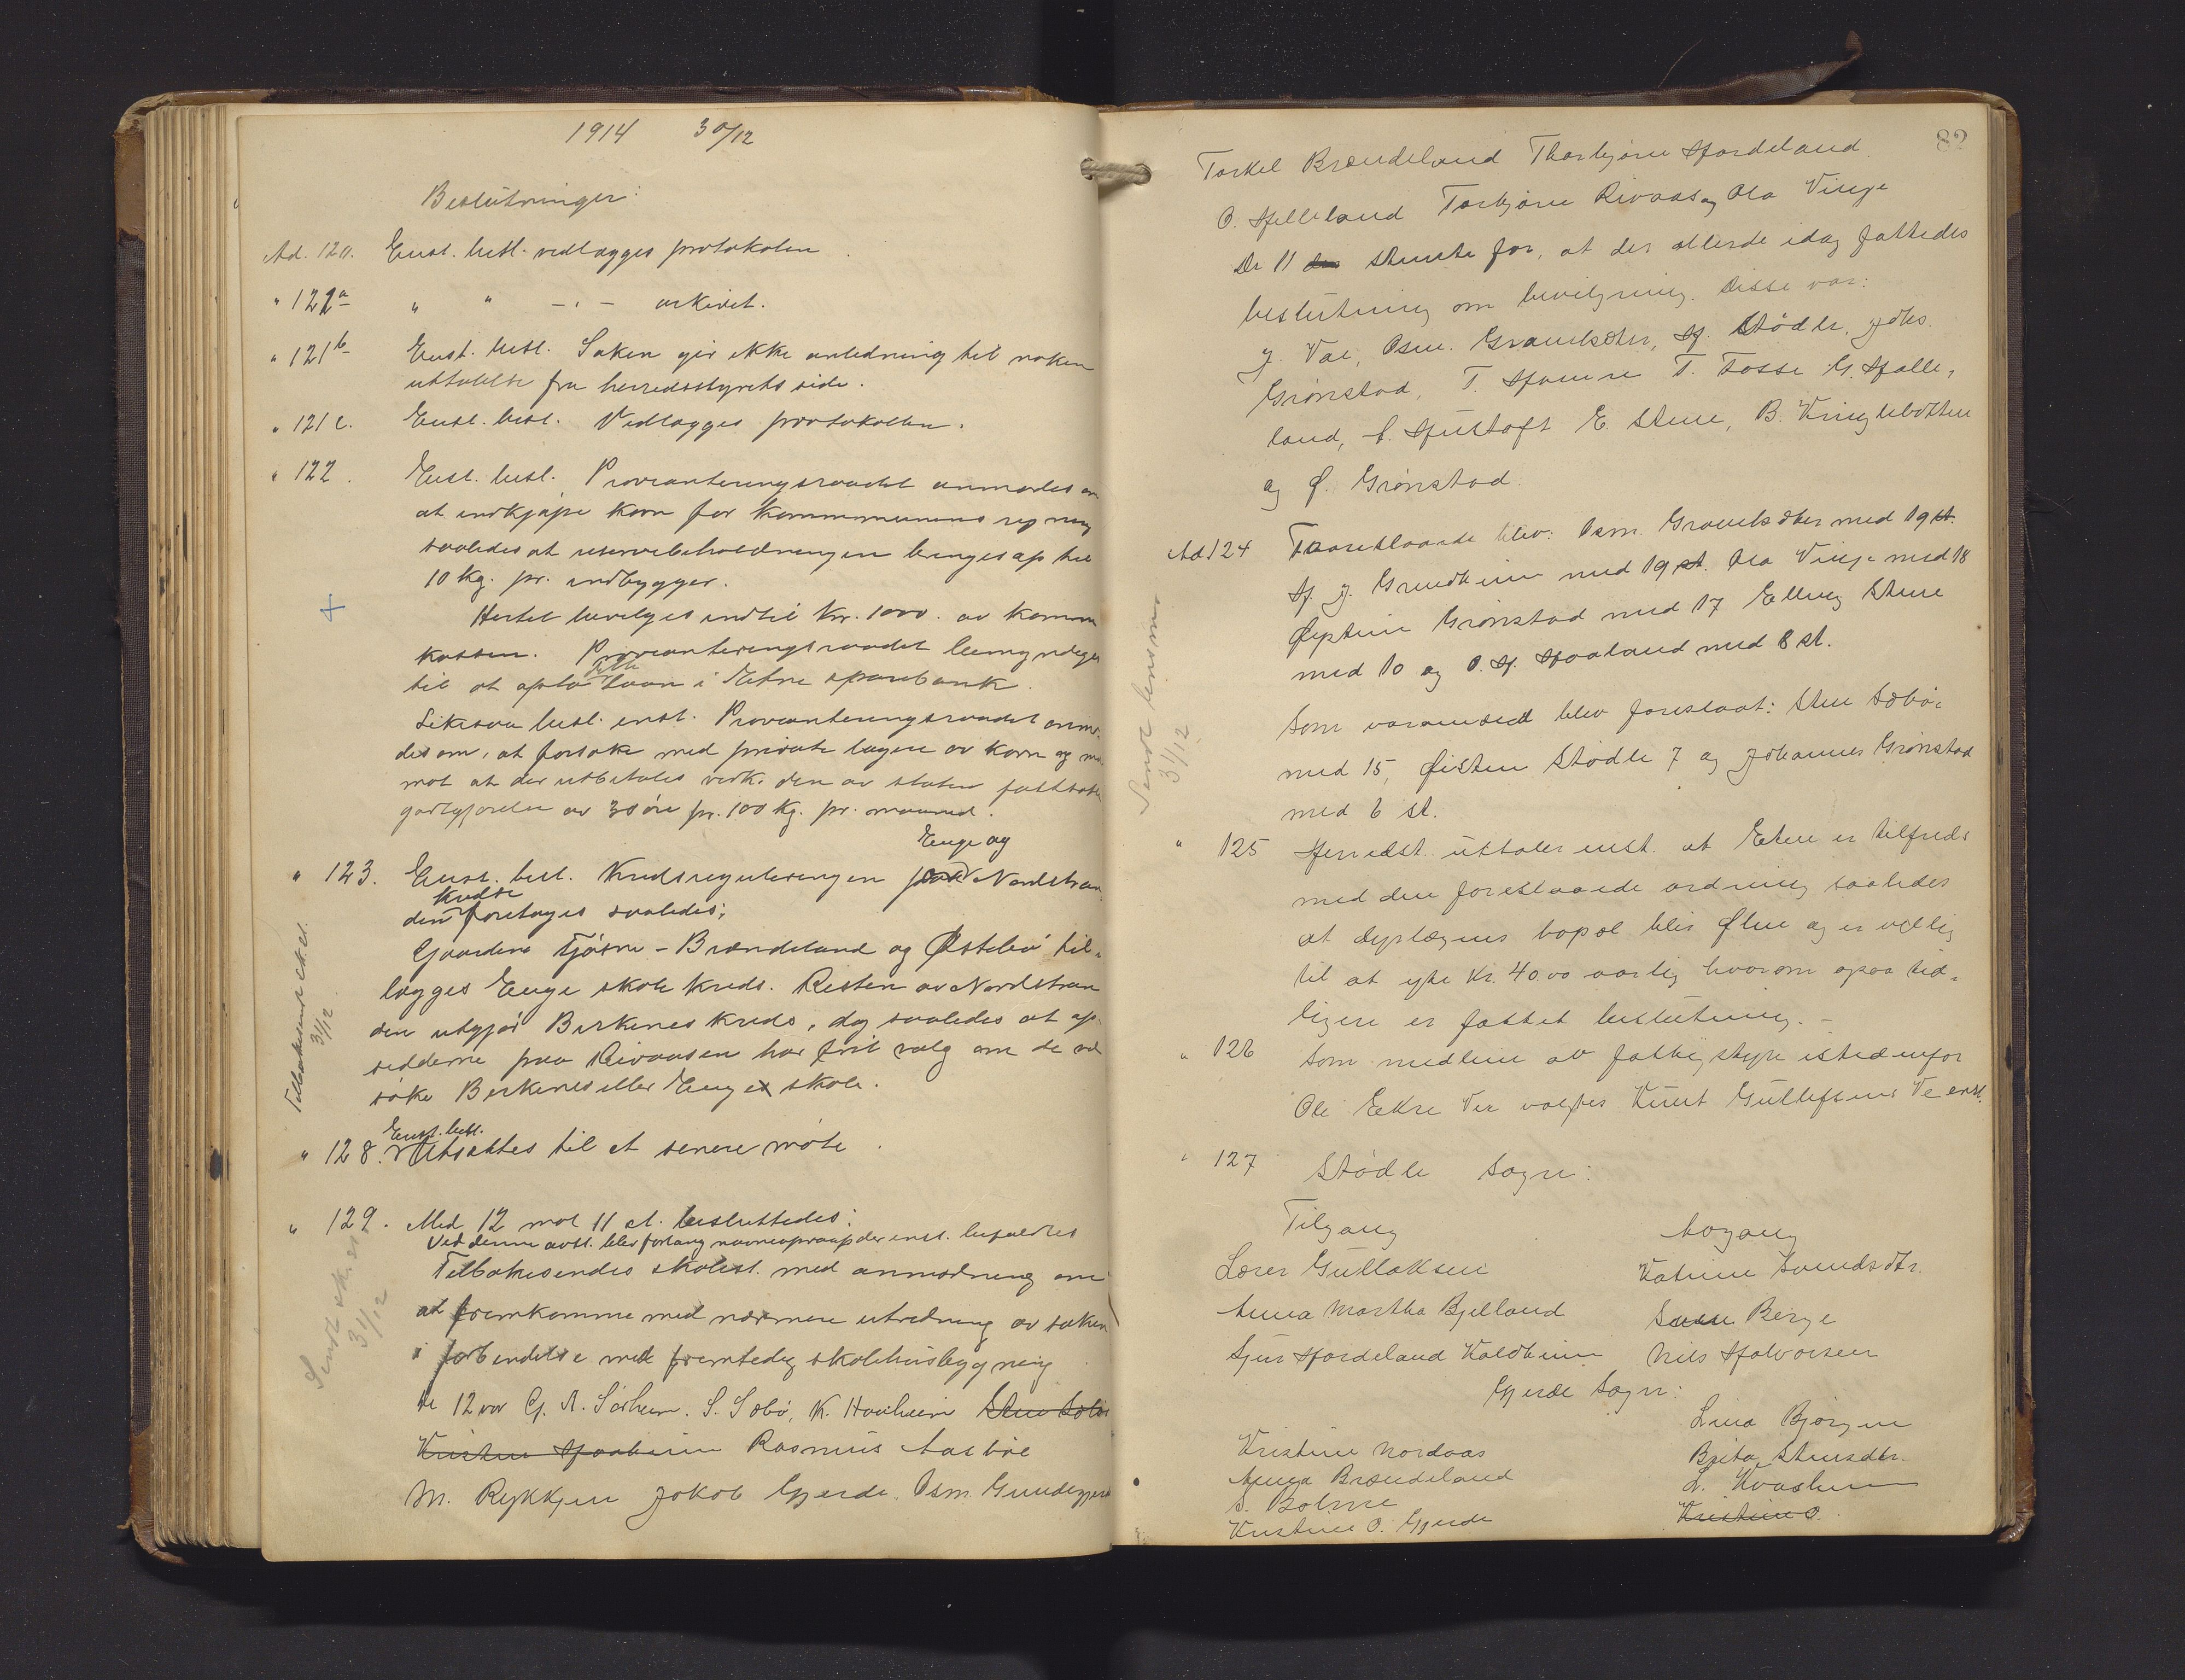 1914 30/12
Beslutninger:
Ad. 120. Enst. besl. vedlægges protokolen.
" 121a " " -"- arkivet.
" 121b Enst. besl. Saken gir ikke anledning til noken
uttalelse fra herredsstyrets side.
" 121c. Enst. besl. Vedlægges protokollen.
" 122. Enst. besl. Provianteringsraadet anmodes om
at indkjøpe korn for kommunens regning
saaledes at reservebeholdningen bringes op til
10 kg. pr. indbygger.
Hertil bevilges indtil Kr. 1000. av komm
kassen. Provianteringsraadet bemyndiges
til at opta dette laan i Etne sparebank.
Likesaa besl. enst. Provianteringsraadet anmo-
des om, at forsøke med private lagere av korn og
mot at der utbetales vedk. den av staten fastsatte
godtgjørelse av 30 øre pr. 100 kg. pr. maaned.
" 123. Enst. besl. Kredsreguleringen Enge og Nordstran
den kredse foretages saaledes;
Gaardene Tjøsne - Brændeland og Østebø til-
lægges Enge skolekreds. Resten av Nordstran
den utgjør Birkenes kreds, dog saaledes at op-
sidderne paa Rivaasen har frit valg om de vil
søke Birkenes eller Enge skole.
Tilbakesendt sk.st.
31/12
" 128. Enst. besl. Utsættes til et senere møte.
" 129. Med 12 mot 11 st. besluttedes:
Ved denne avst. blev forlang navneopraap der enst. besluttedes
Tilbakesendes skolest. med anmodning om
at fremkomme med nærmere utredning av saken
i forbindelse med fremtidig skolehusbygning
De 12 var G. A. Sørheim. S. Sæbø, K. Haaheim Sten Sæbø
Kristen Haaheim Rasmus Aasbøe
M. Rykkjen Jakob Gjerde. Osm. Grindegjerd
Sendt sk.st.
31/12
82
Torkel Brændeland Thorbjørn Hardeland
O. Helleland Torbjørn Rivaas og Ola Vinge
De 11 stemte for, at der allerede idag fattedes
beslutning om bevilgning. Disse var:
J. Vae, Osm. Gravelsæter, H. Stødle, Johs.
Grønstad, T. Hamre T. Fosse G. Hælle-
land, A. Hustoft E. Stene, B. Kringlebotten
og Ø. Grønstad.
Ad 124 Foreslaaede blev: Osm. Gravelsæter med 19 st.
H. J. Grindheim med 19 st. Ola Vinge med 18
Øystein Grønstad med 17 Elling Stene
med 10 og O. H. Haaland med 8 st.
Som varamænd blev foreslaat: Sten Sæbø
med 15, Øisten Stødle 7 og Johannes Grønstad
med 6 st.
Sendt lensman
31/12
" 125 Herredst. uttaler enst. at Etne er tilfreds
med den foreslaaede ordning saaledes
at dyrlægens bopæl blir Ølen og er villig
til at yte Kr. 400 aarlig hvorom ogsaa tid-
ligere er fattet beslutning. -
" 126 Som medlem av fattigstyre istedenfor
Ole Ekre Ver valgtes Knut Gullefsens Ve enst.
" 127 Stødle sogn:
Tilgang Avgang
Lærer Gullaksen Katrine Svendsdtr.
Anna Martha Bjelland Svein Berge
Sjur Hardeland Kaldheim Nils Halvorsen
Gjerde Sogn:
Lina Bjørgen
Kristine Nordaas Brita Stensdtr.
Anna Brændeland L. Kvasheim
S. Bolme Kristine O.
Kristine O. Gjerde